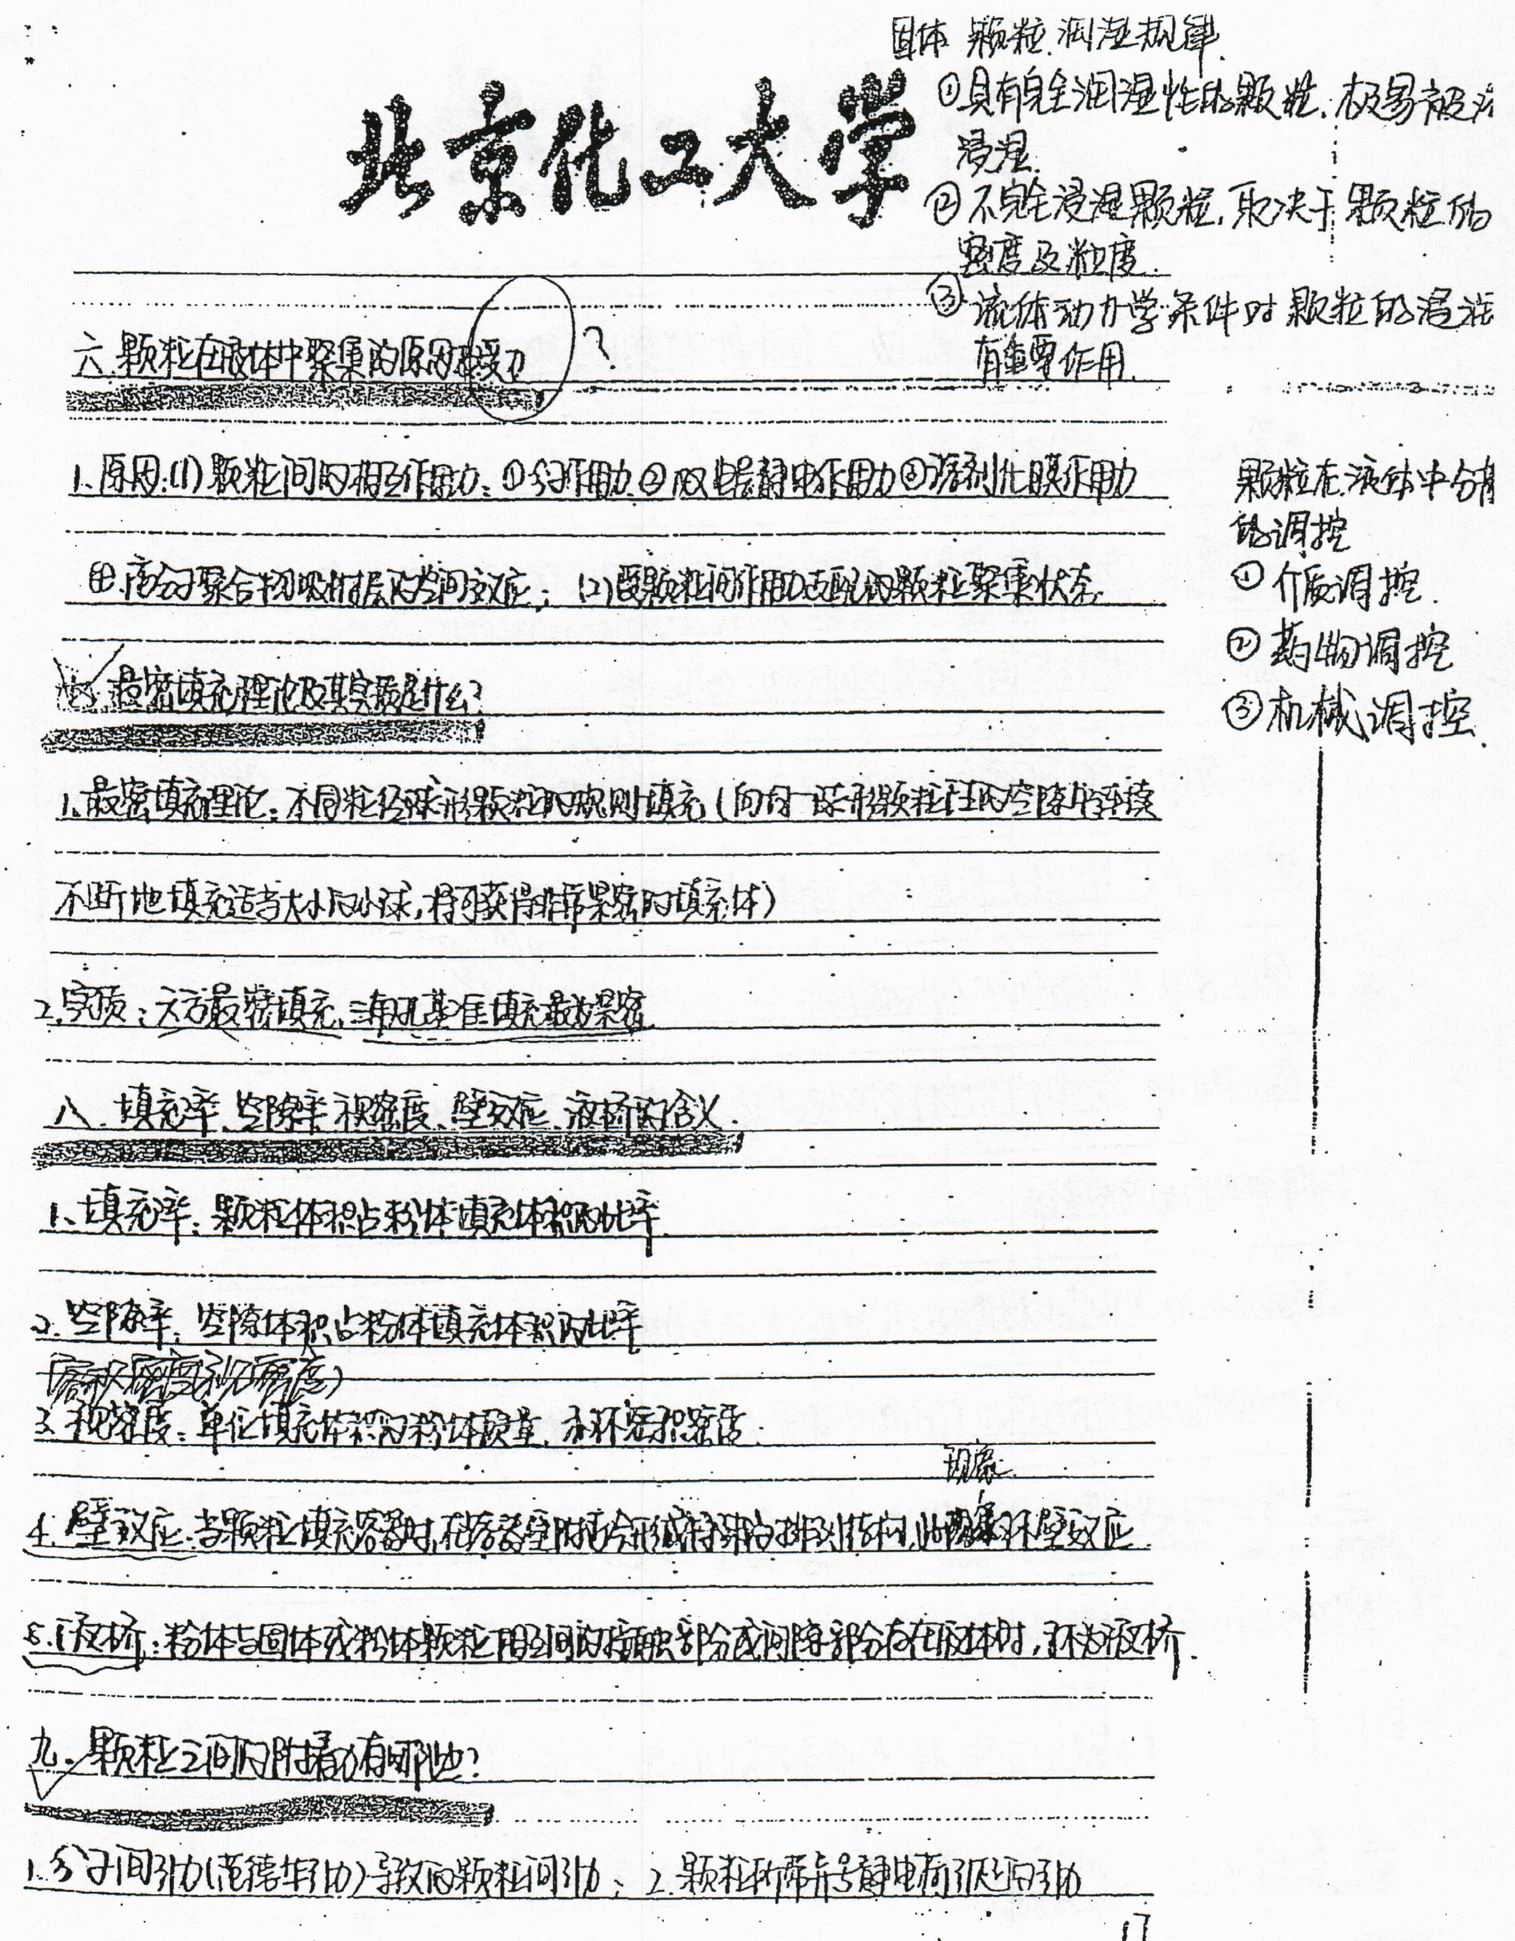 固体颗粒润湿规律.
①具有完全润湿性的颗粒,极易被
浸湿.
②不完全浸湿颗粒,取决于颗粒的
密度及粒度.
③流体动力学条件对颗粒的浸湿
有重要作用.
北京化工大学
六.颗粒在液体中聚集的原因和受力 ?
1.原因:(1)颗粒间的相互作用力:①分子作用力②双电层静电作用力③溶剂化膜作用力
④.高分子聚合物吸附层的空间效应; (2)受颗粒间作用力支配的颗粒聚集状态.
颗粒在液体中分散
的调控
①介质调控.
②药物调控
③机械调控.
七.最密填充理论及其实质是什么?
1.最密填充理论:不同粒径球形颗粒的规则填充(向均一球形颗粒产生的空隙中连续
不断地填充适当大小的小球,将可获得非常紧密的填充体)
2.实质:六方最密填充,三角孔基准填充最为紧密.
八.填充率、空隙率、视密度、壁效应、液桥的含义.
1.填充率:颗粒体积占粉体填充体积的比率.
2.空隙率:空隙体积占粉体填充体积的比率
3.视密度:单位填充体积的粉体质量,亦称容积密度.
现象.
4.壁效应:当颗粒填充容器时,在容器壁附近会形成特殊的排列结构,此现象称壁效应.
5.液桥:粉体与固体或粉体颗粒相互间的接触部分或间隙部分存在液体时,称为液桥.
九.颗粒之间的附着力有哪些?
1.分子间引力(范德华引力)导致的颗粒间引力; 2.颗粒所带异号静电荷引起的引力
17